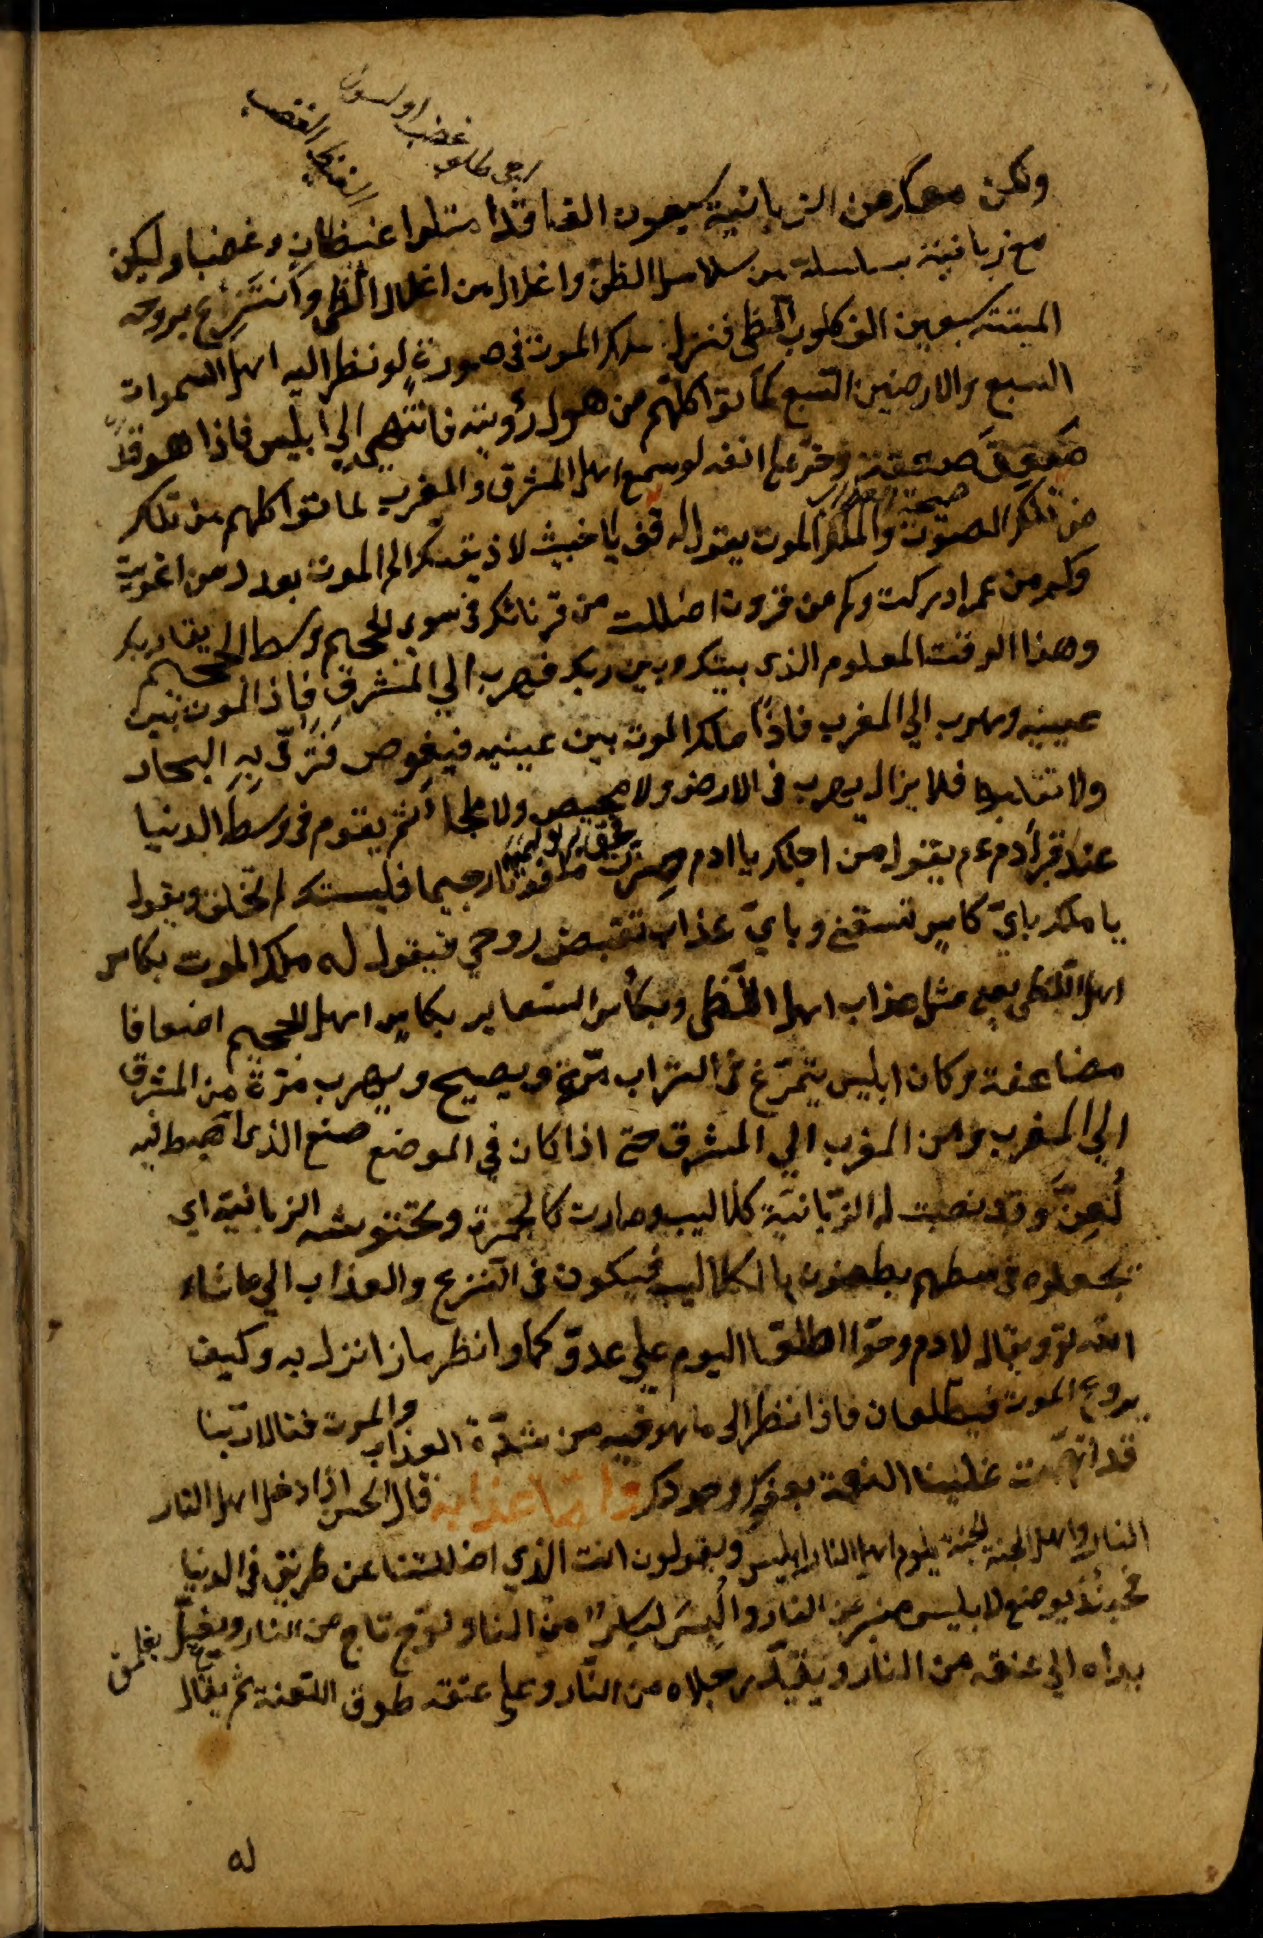 الغيظ الغضب
ولكن معك من الزبانية سبعون الفا قد امتلوا غيظا وغضبا وليكن
مع زبانية سلسلة من سلاسل اللظى واغلال من اغلال اللظى وانتزع بروحه
المنتنة سبعين الف كلوب اللظى فنزل ملك الموت فى صورة لو نظر اليه اهل السموات
السبع والارضين السبع لماتوا كلهم من هول رؤيته فانتهى الي ابليس فاذا هو قد
صعق صعقة وخر على انفه لو سمع اهل المشرق والمغرب لماتوا كلهم من تلك
من تلك الصوت والملك الموت يقول له قف يا خبيث لاذيقنك الم الموت بعدد من اغويت
وكم من عمر ادركت وكم من قرون اضللت من قرنائك فى سوى الجحيم وسط الجحيم
وهذا الوقت المعلوم الذى بينك وبين ربك فيهرب الي المشرق فاذا الموت بين
عينيه ويهرب الي المغرب فاذا ملك الموت بين عينيه فيغوص فترمي به البحار
ولا تقابها فلا يزال يهرب فى الارض ولا محيص ولا ملجا ثم يقوم فى وسط الدنيا
عند قبر آدم عم يقول من اجلك يا ادم صرت رجيما الخلق ويقول
يا ملك باي كاس تسقنى وباي عذاب تقبض روحي فيقول له ملك الموت بكاس
اهل اللظى يعنى مثل عذاب اهل اللظى وبكاس السعاير بكاس اهل الجحيم اضعافا
مضاعفة وكان ابليس يتمرغ فى التراب مرة ويصيح ويهرب مرة من المشرق
الى المغرب ومن المغرب الي المشرق حتى اذا كان في الموضع الذى اهبط فيه
لعن وقد نصبت له الزبانية كلاليب وصارت كالجمرة وتحتوشه الزبانية اى
تجعلوه فى وسطهم يطعنون بالكلاليب فيكون فى النزع والعذاب الي ما شاء
الله تع ويقال لادم وحوا اطلعا اليوم علي عدوكما وانظر ما ذا نزل به وكيف
الموت فيطلعان فاذا نظر الى ما هو فيه من شدة العذاب والموت فقالا ربنا
قد اتممت علينا النعمة واما عذابه قال الحسن اذا دخل اهل النار
النار واهل الجنة الجنة يلوم اهل النار ابليس ويقولون انت الذي اضللتنا عن طريق في الدنيا
فحينئذ يوضع لابليس منبر من النار والبس لباس من النار وتوج تاج من النار ويغل
يداه الي عنقه من النار ويقيد رجلاه من النار وعلى عنقه طوق اللعنة ثم يقال
له